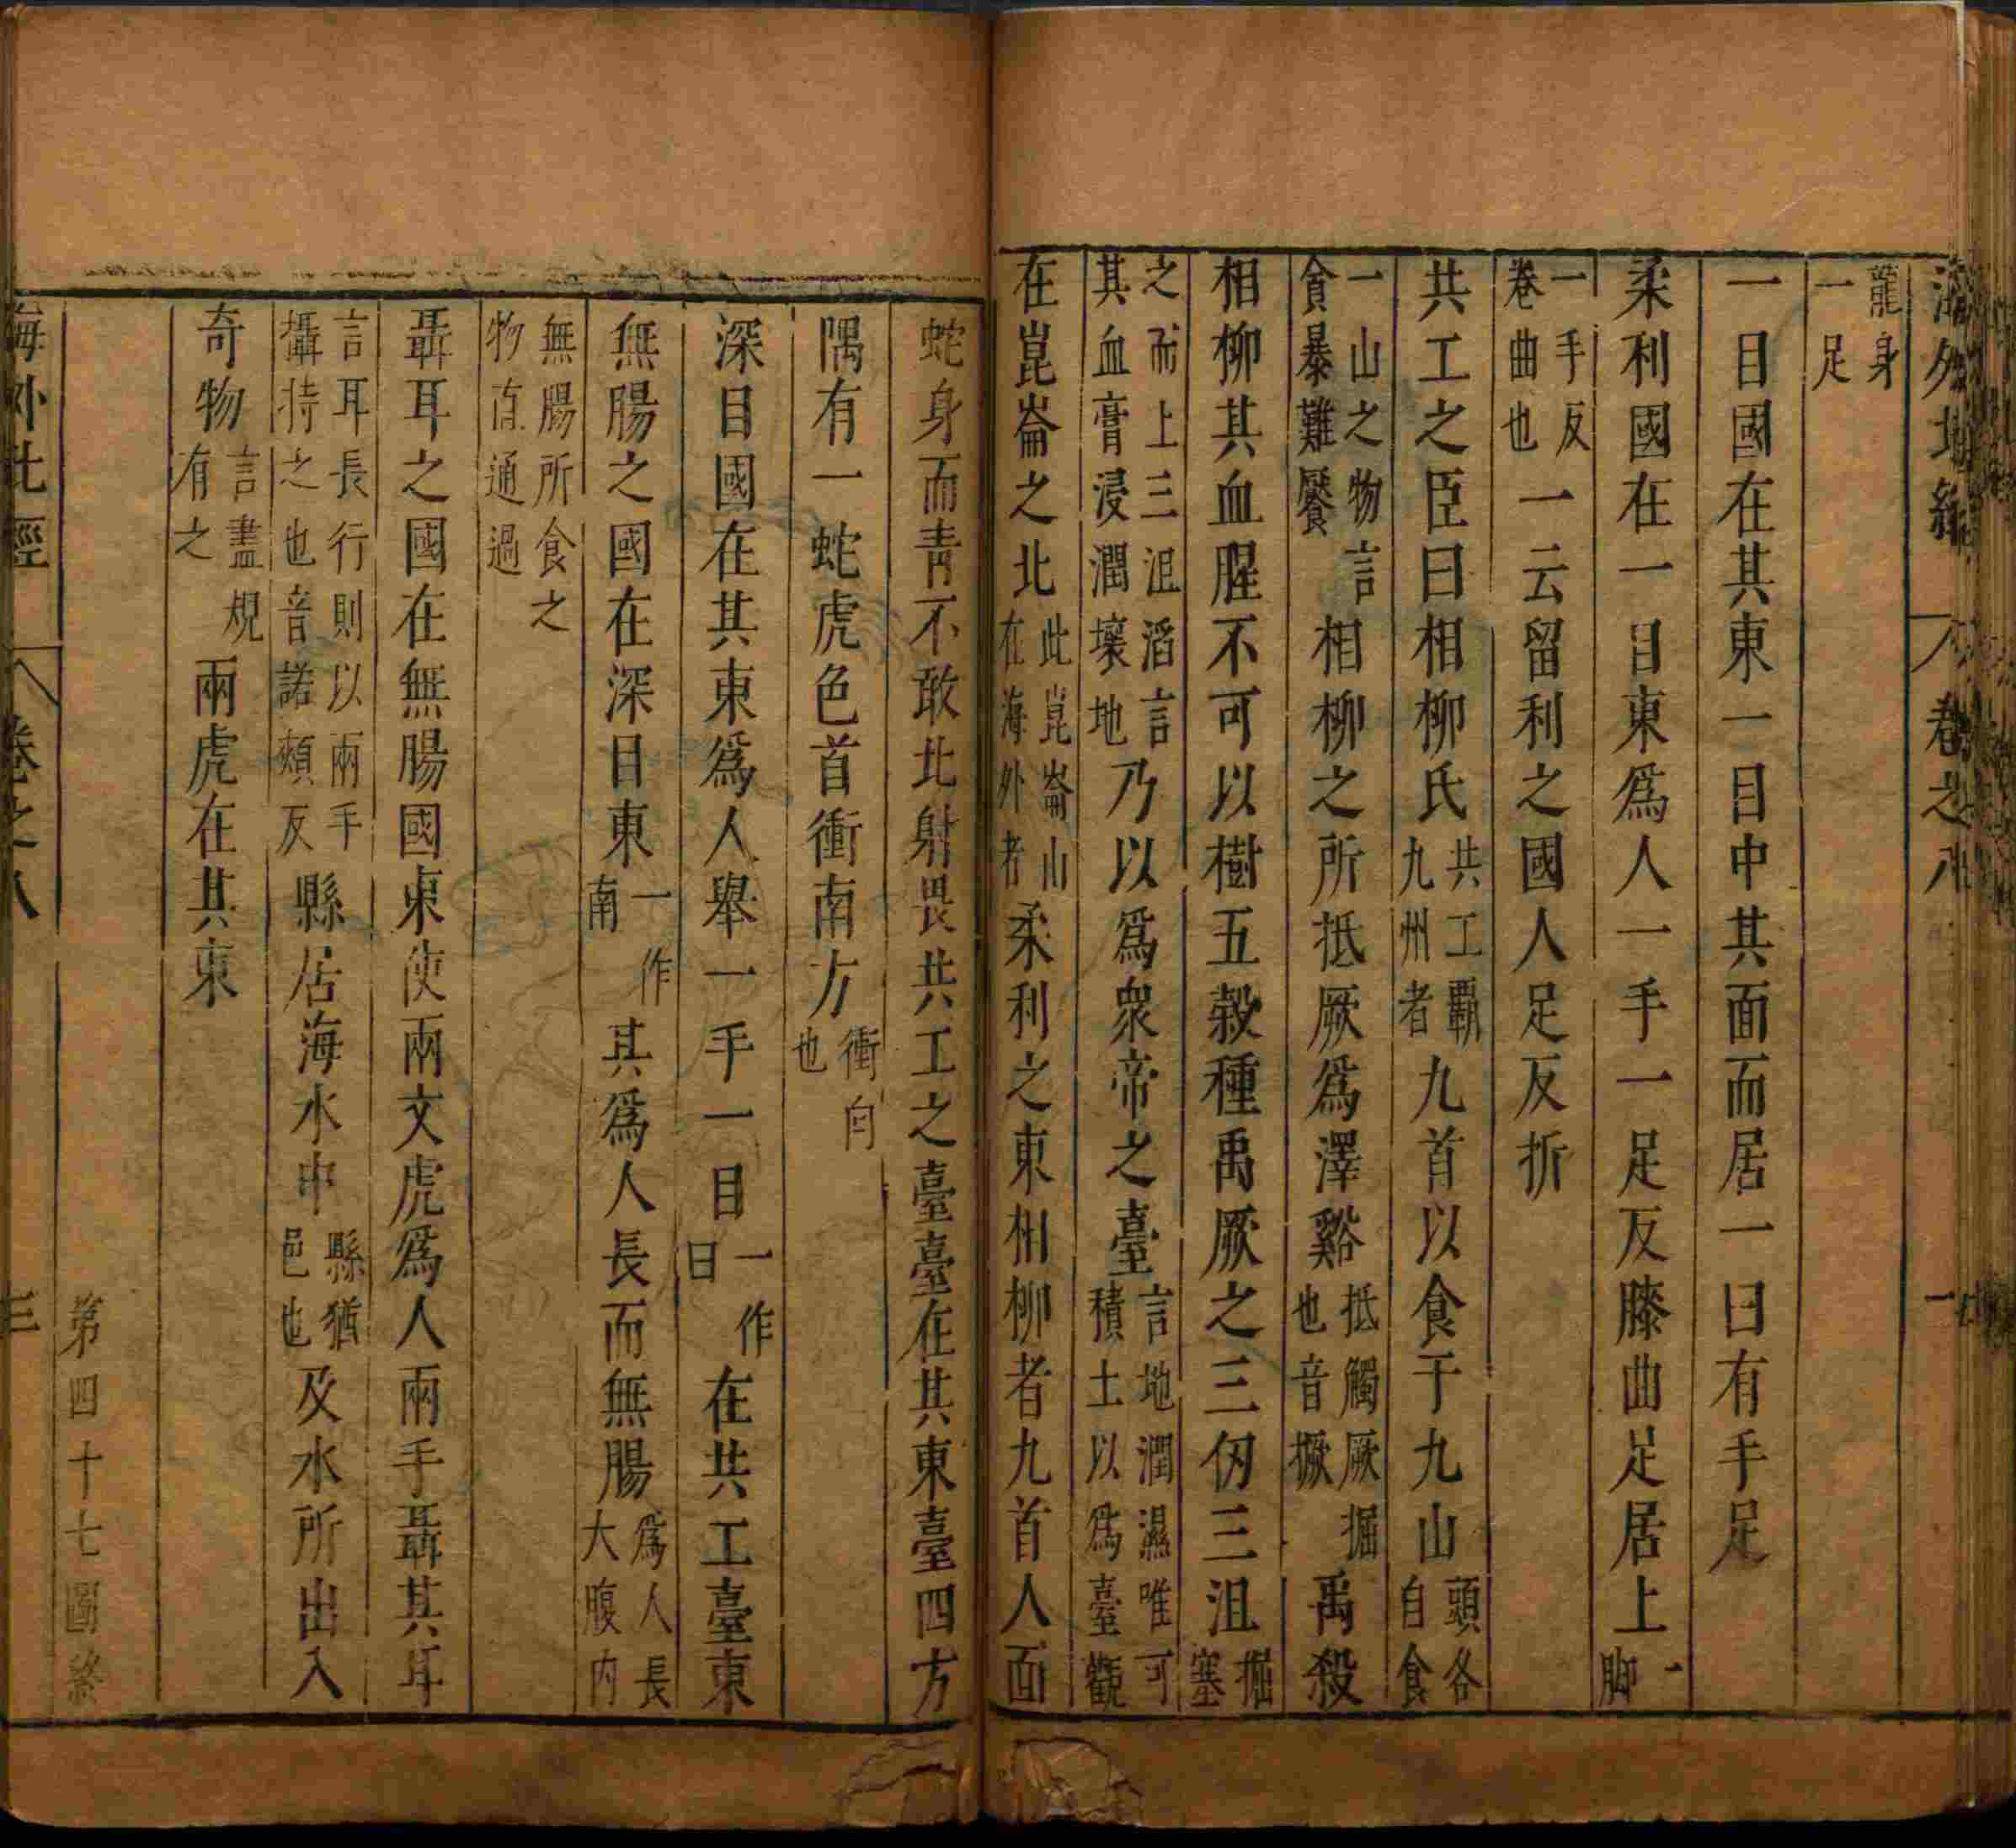 龍身一足
一目國在其東一目中其面而居一曰有手足
柔利國在一目東爲人一手一足反膝曲足居上一脚
一手反卷曲也一云留利之國人足反折
共工之臣曰相柳氏共工覇九州者九首以食于九山頭各自食
一山之物言貪暴難饜相柳之所抵厥爲澤谿抵觸厥掘也音撅禹殺
相柳其血腥不可以樹五榖種禹厥之三仞三沮掘塞
之而上三沮滔言其血膏浸潤壤地乃以爲衆帝之臺言地潤濕唯可積土以爲臺觀
在崑崙之北此崑崙山在海外者柔利之東相柳者九首人面
蛇身而青不敢北射畏共工之臺臺在其東臺四方
隅有一蛇虎色首衝南方衝向也
深目國在其東爲人舉一手一目一作曰在共工臺東
無腸之國在深目東一作南其爲人長而無腸爲人長大腹内
無腸所食之物直通過
聶耳之國在無腸國東使兩文虎爲人兩手聶其耳
言耳長行則以兩手攝持之也音諾頰反縣居海水中縣猶邑也及水所出入
奇物言盡規有之兩虎在其東
第四十七圖終
海外北經 卷之八 三